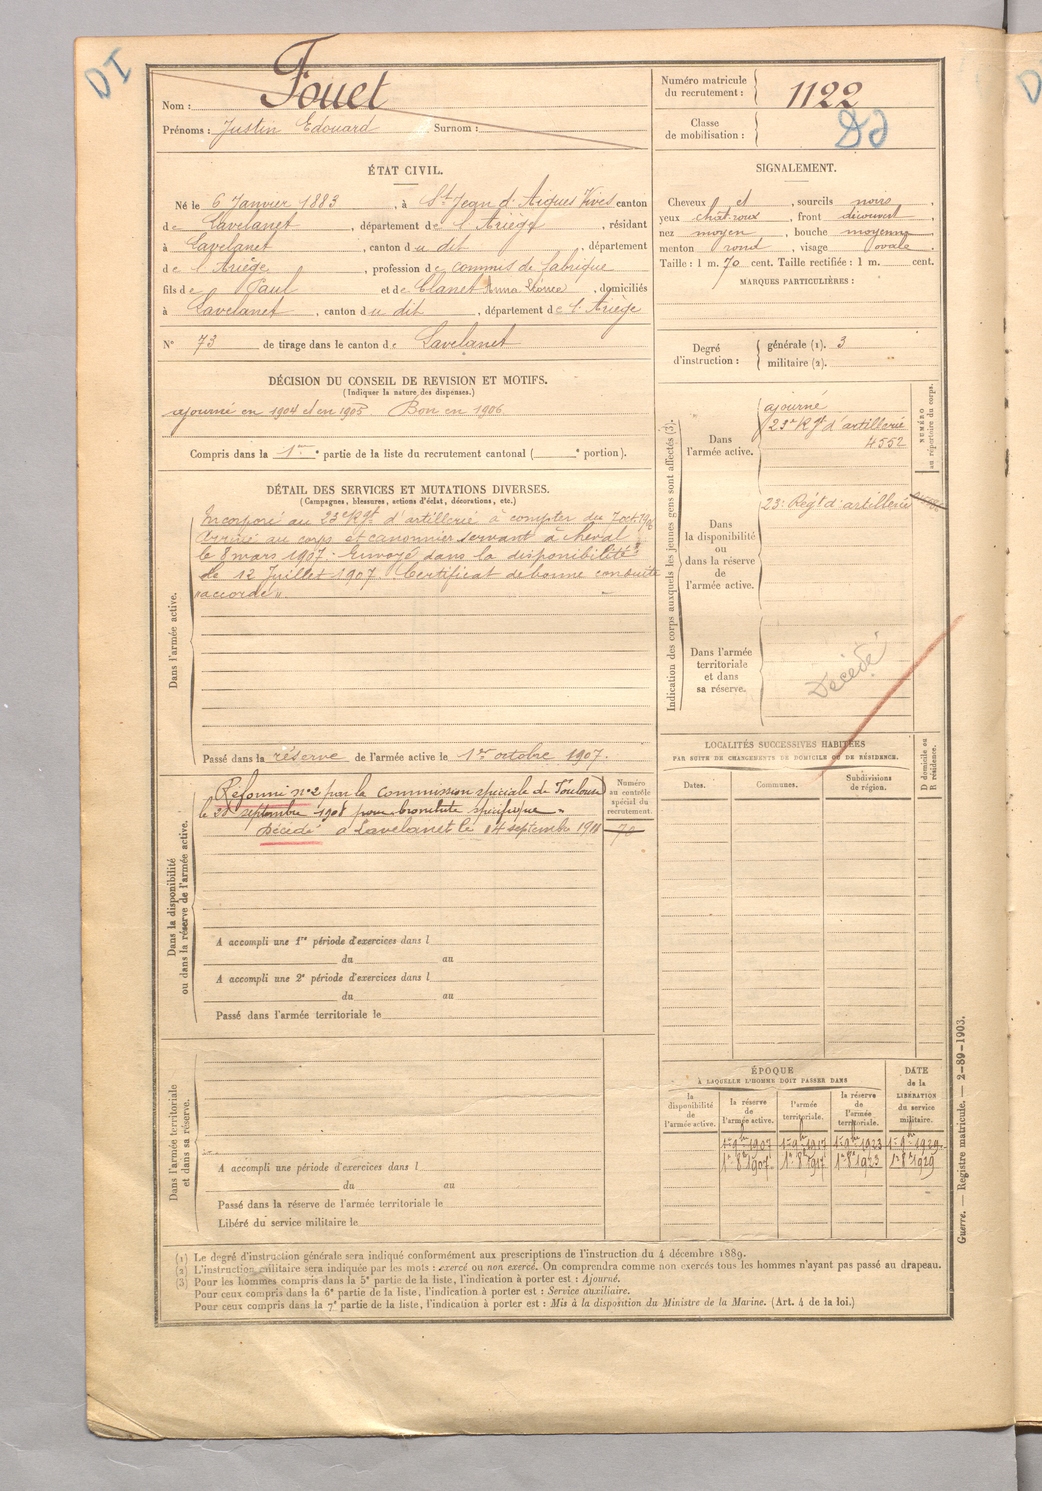 DI
Nom : Fouet
Prénoms : Justin Edouard Surnom :
Numéro matricule du recrutement : 1122
Classe de mobilisation :
ÉTAT CIVIL.
Né le 6 Janvier 1883, à St Jean d'Aigues Vives canton
de Lavelanet, département de l'Ariège, résidant
à Lavelanet, canton du dit, département
de l'Ariège, profession de commis de fabrique
fils de Paul et de Clanet Anna, domiciliés
à Lavelanet, canton du dit, département de l'Ariège
N° 73 de tirage dans le canton de Lavelanet
SIGNALEMENT.
Cheveux et, sourcils noirs,
yeux chat. roux, front découvert,
nez moyen, bouche moyenne,
menton rond, visage ovale.
Taille : 1 m. 70 cent. Taille rectifiée : 1 m. cent.
MARQUES PARTICULIÈRES :
Degré d'instruction : générale (1). 3
militaire (2).
DÉCISION DU CONSEIL DE REVISION ET MOTIFS.
(Indiquer la nature des dispenses.)
ajourné en 1904 et en 1905 Bon en 1906
Compris dans la 1re partie de la liste du recrutement cantonal ( e portion).
DÉTAIL DES SERVICES ET MUTATIONS DIVERSES.
(Campagnes, blessures, actions d'éclat, décorations, etc.)
Dans l'armée active.
Incorporé au 23e Rgt d'artillerie à compter du 7 oct.
Arrivé au corps et canonnier servant à cheval
le 8 mars 1907. Envoyé dans la disponibilité
le 12 Juillet 1907. Certificat de bonne conduite
"accordé".
Passé dans la réserve de l'armée active le 1er octobre 1907.
Indication des corps auxquels les jeunes gens sont affectés (3).
NUMÉRO au répertoire du corps.
Dans l'armée active.
ajourné
23e Rgt d'artillerie
4552
Dans la disponibilité ou dans la réserve de l'armée active.
23e Régt d'artillerie
Dans l'armée territoriale et dans sa réserve.
Décédé
LOCALITÉS SUCCESSIVES HABITÉES
PAR SUITE DE CHANGEMENTS DE DOMICILE OU DE RÉSIDENCE.
Dates. Communes. Subdivisions de région. D domicile ou R résidence.
Dans la disponibilité ou dans la réserve de l'armée active.
Numéro au contrôle spécial du recrutement.
Réformé n° 2 par la Commission spéciale de Toulouse
le septembre 1908 pour bronchite spécifique.
Décédé à Lavelanet le 14 septembre 1911
70
A accompli une 1re période d'exercices dans l
du au
A accompli une 2e période d'exercices dans l
du au
Passé dans l'armée territoriale le
Dans l'armée territoriale et dans sa réserve.
A accompli une période d'exercices dans l
du au
Passé dans la réserve de l'armée territoriale le
Libéré du service militaire le
ÉPOQUE
À LAQUELLE L'HOMME DOIT PASSER DANS
la disponibilité de l'armée active. la réserve de l'armée active. l'armée territoriale. la réserve de l'armée territoriale. DATE de la LIBÉRATION du service militaire.
1er 9bre 1907 1er 9bre 1917 1er 9bre 1923 1er 9bre 1929.
1er 8bre 1907. 1er 8bre 1917 1er 8bre 1923 1er 8bre 1929
Guerre. — Registre matricule. — 2-89-1903.
(1) Le degré d'instruction générale sera indiqué conformément aux prescriptions de l'instruction du 4 décembre 1889.
(2) L'instruction militaire sera indiquée par les mots : exercé ou non exercé. On comprendra comme non exercés tous les hommes n'ayant pas passé au drapeau.
(3) Pour les hommes compris dans la 5e partie de la liste, l'indication à porter est : Ajourné.
Pour ceux compris dans la 6e partie de la liste, l'indication à porter est : Service auxiliaire.
Pour ceux compris dans la 7e partie de la liste, l'indication à porter est : Mis à la disposition du Ministre de la Marine. (Art. 4 de la loi.)